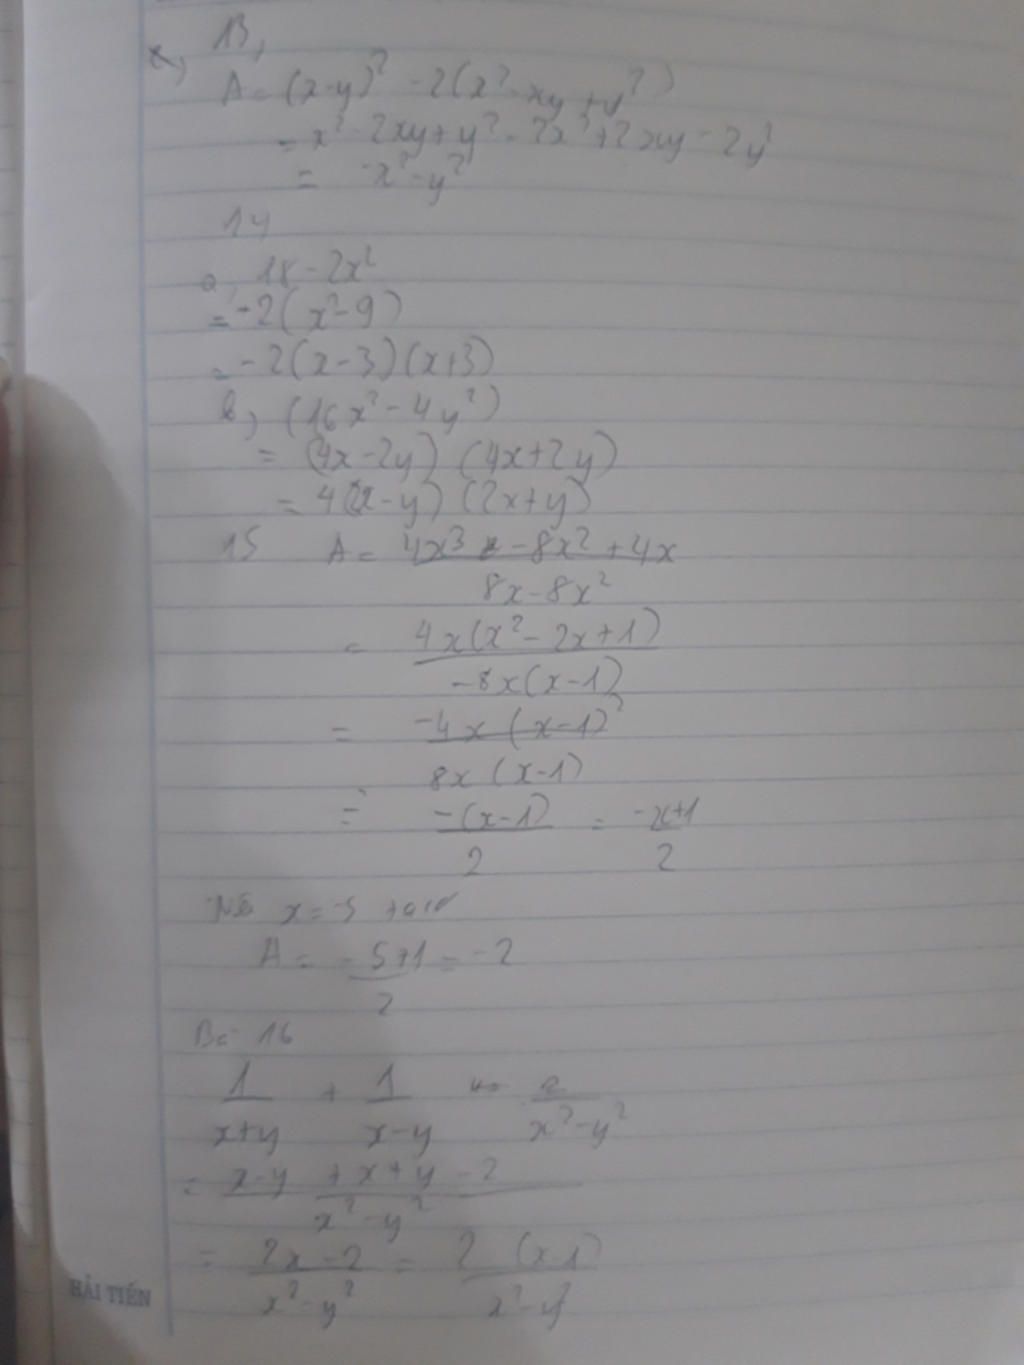 13,
a,
A = (x-y)² - 2(x² - xy + y²)
= x² - 2xy + y² - 2x² + 2xy - 2y²
= -x² - y²
14
a, 18 - 2x²
= -2(x² - 9)
= -2(x-3)(x+3)
b, (16x² - 4y²)
= (4x-2y) (4x+2y)
= 4(2x-y) (2x+y)
15 A = 4x³ - 8x² + 4x
8x - 8x²
= 4x(x² - 2x + 1)
-8x(x-1)
= -4x (x-1)²
8x (x-1)
= -(x-1) = -x+1
2 2
x = -5
A = -5+1 = -2
2
16
1 + 1 2
x+y x-y x² - y²
= x-y + x+y - 2
x² - y²
= 2x - 2 = 2 (x-1)
x² - y² x² - y²
HẢI TIẾN